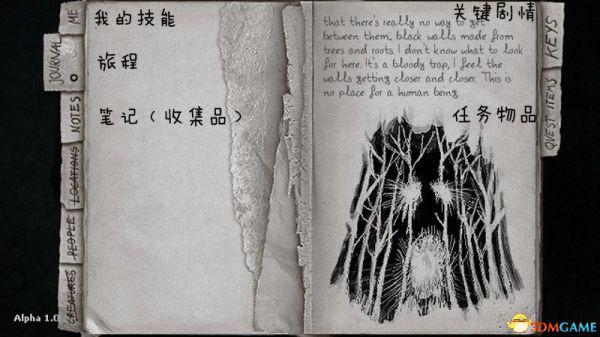 我的技能
旅程
笔记（收集品）
ME
JOURNAL
NOTES
LOCATIONS
PEOPLE
CREATURES
Alpha 1.0
that there's really no way to get
between them. black walls made from
trees and roots. I don't know what to look
for here. It's a bloody trap, I feel the
walls getting closer and closer. This is
no place for a human being.
关键剧情
任务物品
KEYS
QUEST ITEMS
3DMGAME